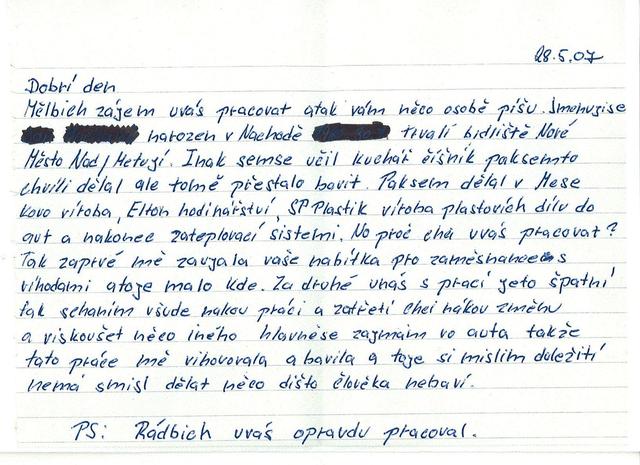 28.5.07
Dobrí den
Mělbich zájem uvás pracovat atak vám něco osobě píšu. Jmenujise
narozen v Nachodě trvalí bidliště Nové
Město Nad/Metují. Inak semse učil kuchář číšník paksemto
chvíli dělal ale tomě přestalo bavit. Paksem dělal v Mese
kovo víroba, Elton hodinářství, SPPlastik víroba plastovích dílu do
aut a nakonec zateplovací sistemi. No proč chci uvás pracovat?
Tak zaprvé mě zaujala vaše nabítka pro zaměsnance s
víhodami atoje malo kde. Za druhé unás s prací jeto špatní
tak scháním všude nakou práci a zatřetí chci nákou změnu
a viskoušet něco iného hlavněse zajmám vo auta takže
tato práce mě vihovovala a bavila a toje si mislim doležití
nemá smisl dělat něco dišto člověka nebaví.
PS: Rádbich uvás opravdu pracoval.